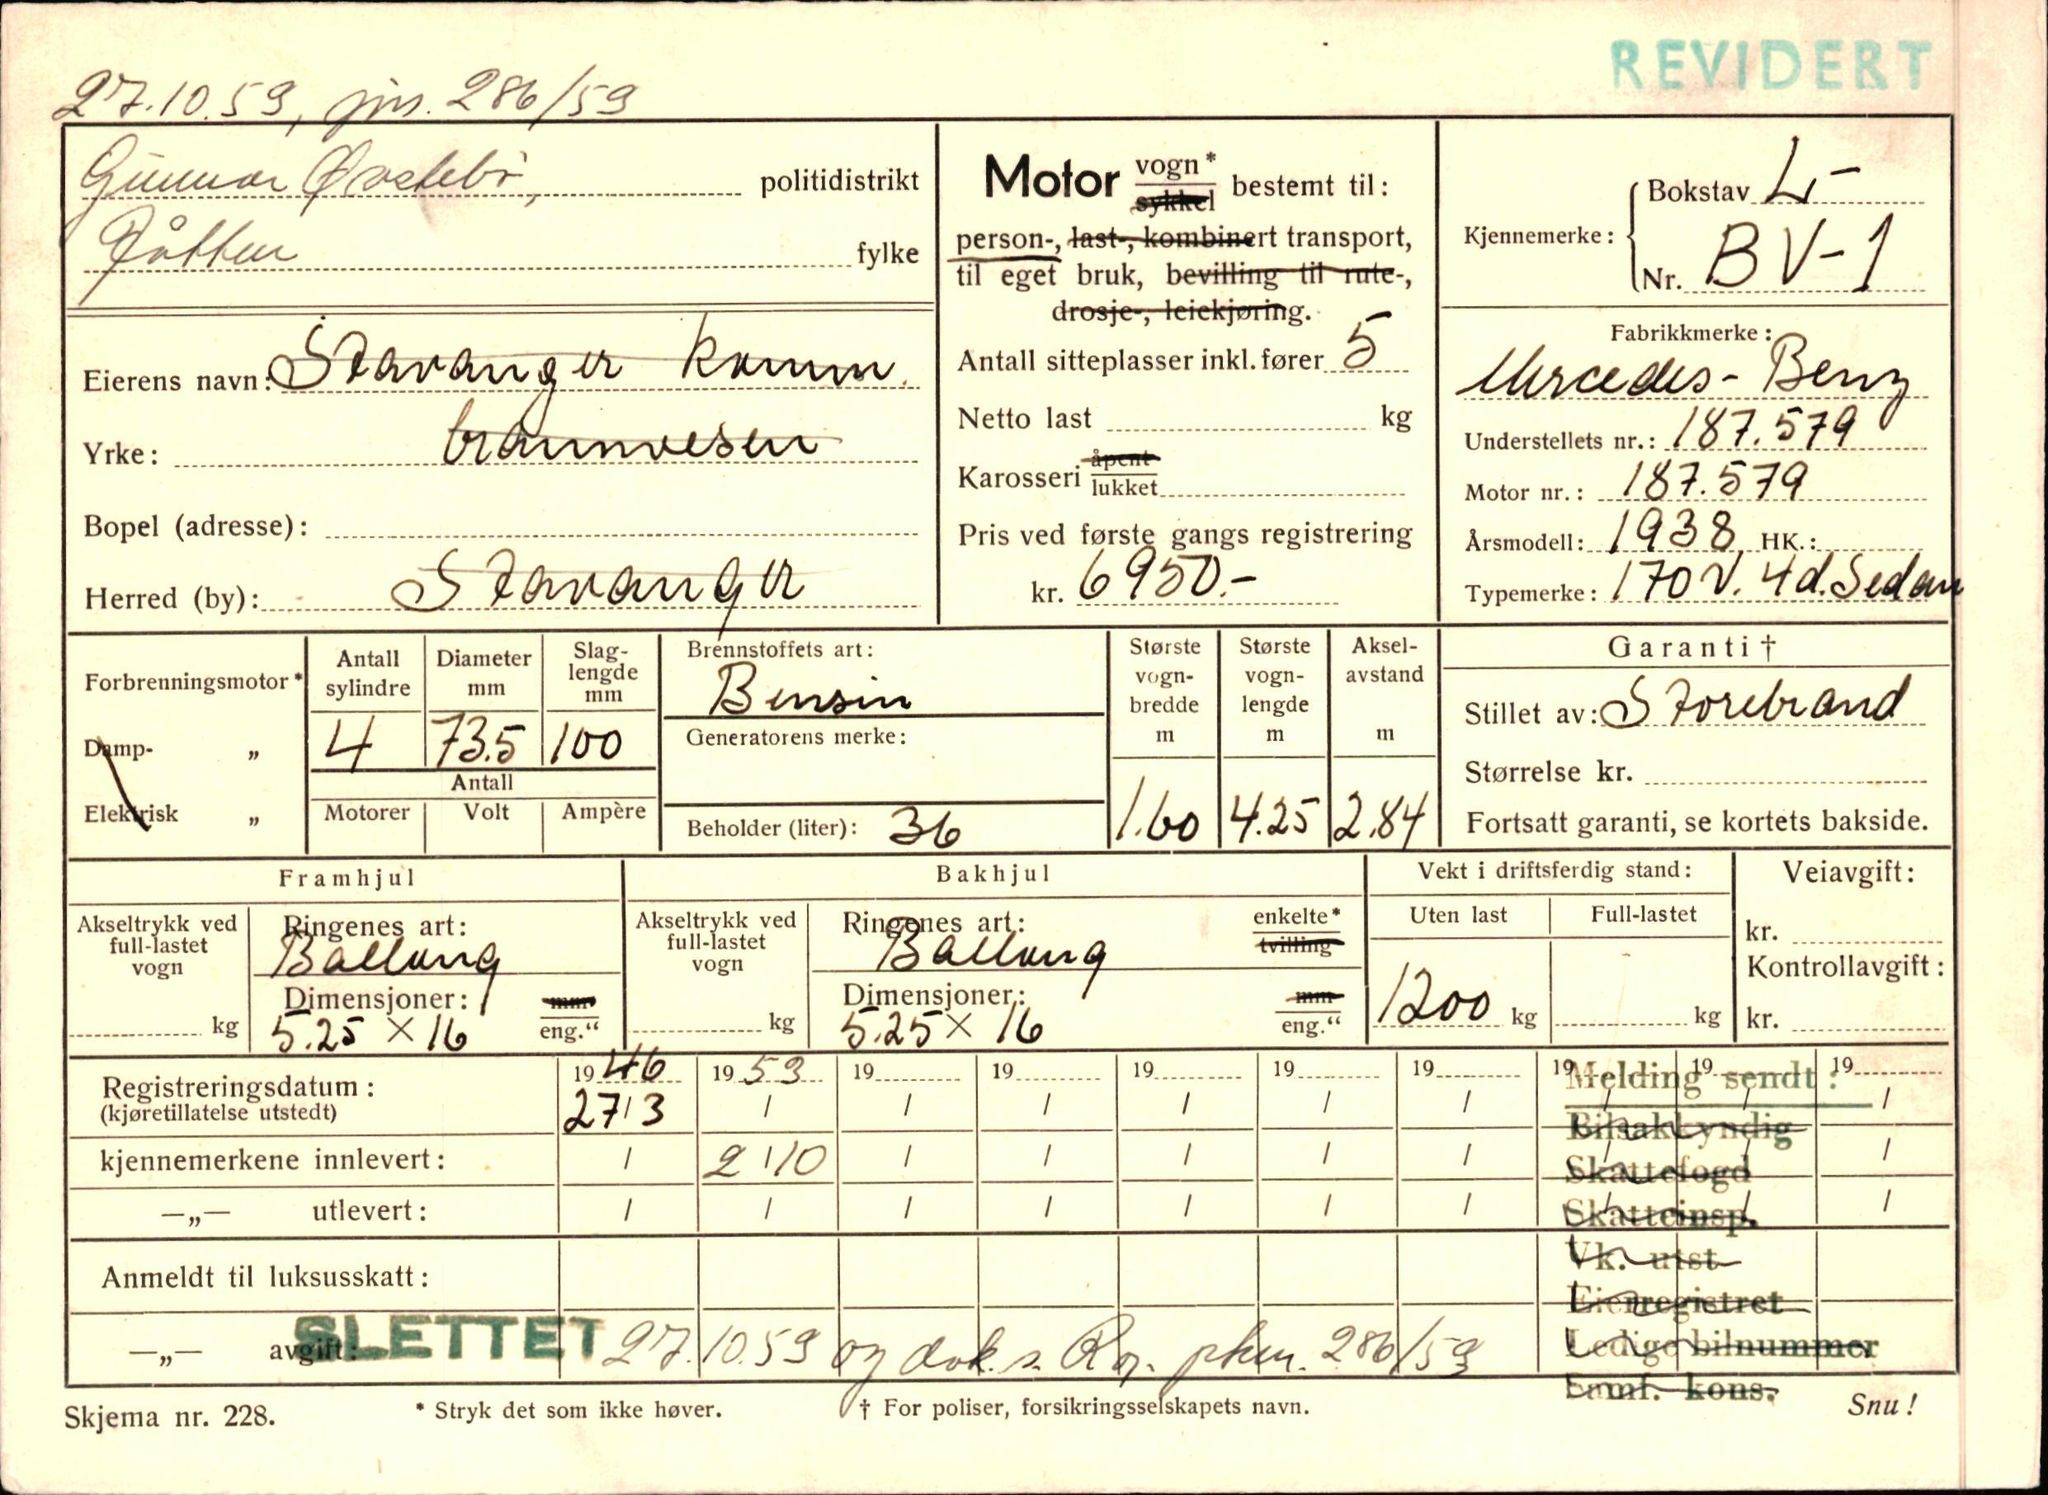 REVIDERT
27.10.59, jns. 286/59
Gunnar Øvstebø, politidistrikt
Jåtten fylke
Eierens navn: Stavanger komm.
Yrke: brannvesen
Bopel (adresse):
Herred (by): Stavanger
Motor vogn* sykkel bestemt til:
person-, last-, kombinert transport,
til eget bruk, bevilling til rute-,
drosje-, leiekjøring.
Antall sitteplasser inkl. fører 5
Netto last kg
Karosseri åpent lukket
Pris ved første gangs registrering
kr. 6950.-
Kjennemerke: Bokstav L-
Nr. BV-1
Fabrikkmerke:
Mercedes-Benz
Understellets nr.: 187.579
Motor nr.: 187.579
Årsmodell: 1938 HK.:
Typemerke: 170 V. 4d. Sedan
Forbrenningsmotor*
Damp- „
Elektrisk „
Antall sylindre Diameter mm Slag-lengde mm
4 73.5 100
Antall
Motorer Volt Ampère
Brennstoffets art:
Bensin
Generatorens merke:
Beholder (liter): 36
Største vogn-bredde m
1.60
Største vogn-lengde m
4.25
Aksel-avstand m
2.84
Garanti †
Stillet av: Storebrand
Størrelse kr.
Fortsatt garanti, se kortets bakside.
Framhjul
Akseltrykk ved full-lastet vogn
kg
Ringenes art:
Ballong
Dimensjoner: mm
5.25 × 16 eng.“
Bakhjul
Akseltrykk ved full-lastet vogn
kg
Ringenes art: enkelte* tvilling
Ballong
Dimensjoner: mm
5.25 × 16 eng.“
Vekt i driftsferdig stand:
Uten last Full-lastet
1200 kg kg
Veiavgift:
kr.
Kontrollavgift:
kr.
Registreringsdatum: 19 46 19 53 19 19 19 19 19 19 19 19
(kjøretillatelse utstedt) 27/3 / / / / / / / / /
kjennemerkene innlevert: / 2/10 / / / / / / / /
—„— utlevert: / / / / / / / / / /
Anmeldt til luksusskatt:
—„— avgift:
SLETTET 27.10.59 og dok. s. 286/59
Melding sendt:
Bilsakkyndig
Skattefogd
Skatteinsp.
Vk. utst
Eierregistret
Ledige bilnummer
kons.
Skjema nr. 228.
* Stryk det som ikke høver.
† For poliser, forsikringsselskapets navn.
Snu!